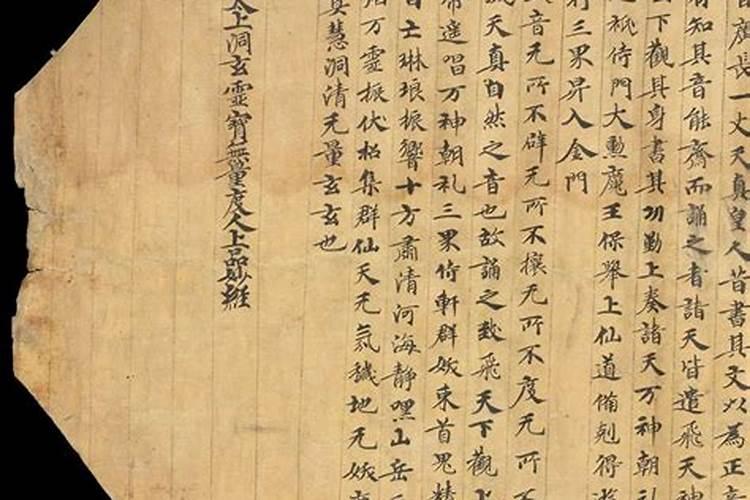 廣長一丈天真皇人昔書其文以為正音
有知其音能齋而誦之者諸天皆遣飛天神
下觀其身書其功勤上奏諸天万神朝礼
祇侍門大勳魔王保舉上仙道備剋得遊
行三界昇入金門
音无所不辟无所不禳无所不度无所不
成天真自然之音也故誦之致飛天下觀上
帝遥唱万神朝礼三界侍軒群妖束首鬼精
自亡琳琅振響十方肅清河海靜嘿山岳
烟万靈振伏招集群仙天无氛穢地无妖
冥慧洞清无量玄玄也
太上洞玄靈寶無量度人上品妙經